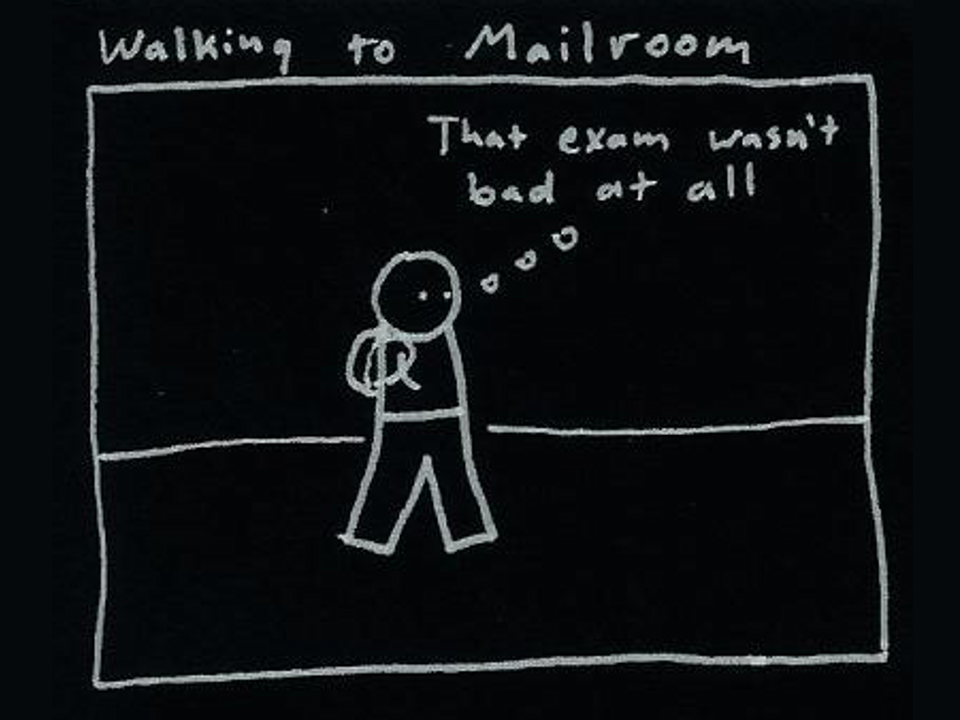 Walking to Mailroom
That exam wasn't
bad at all